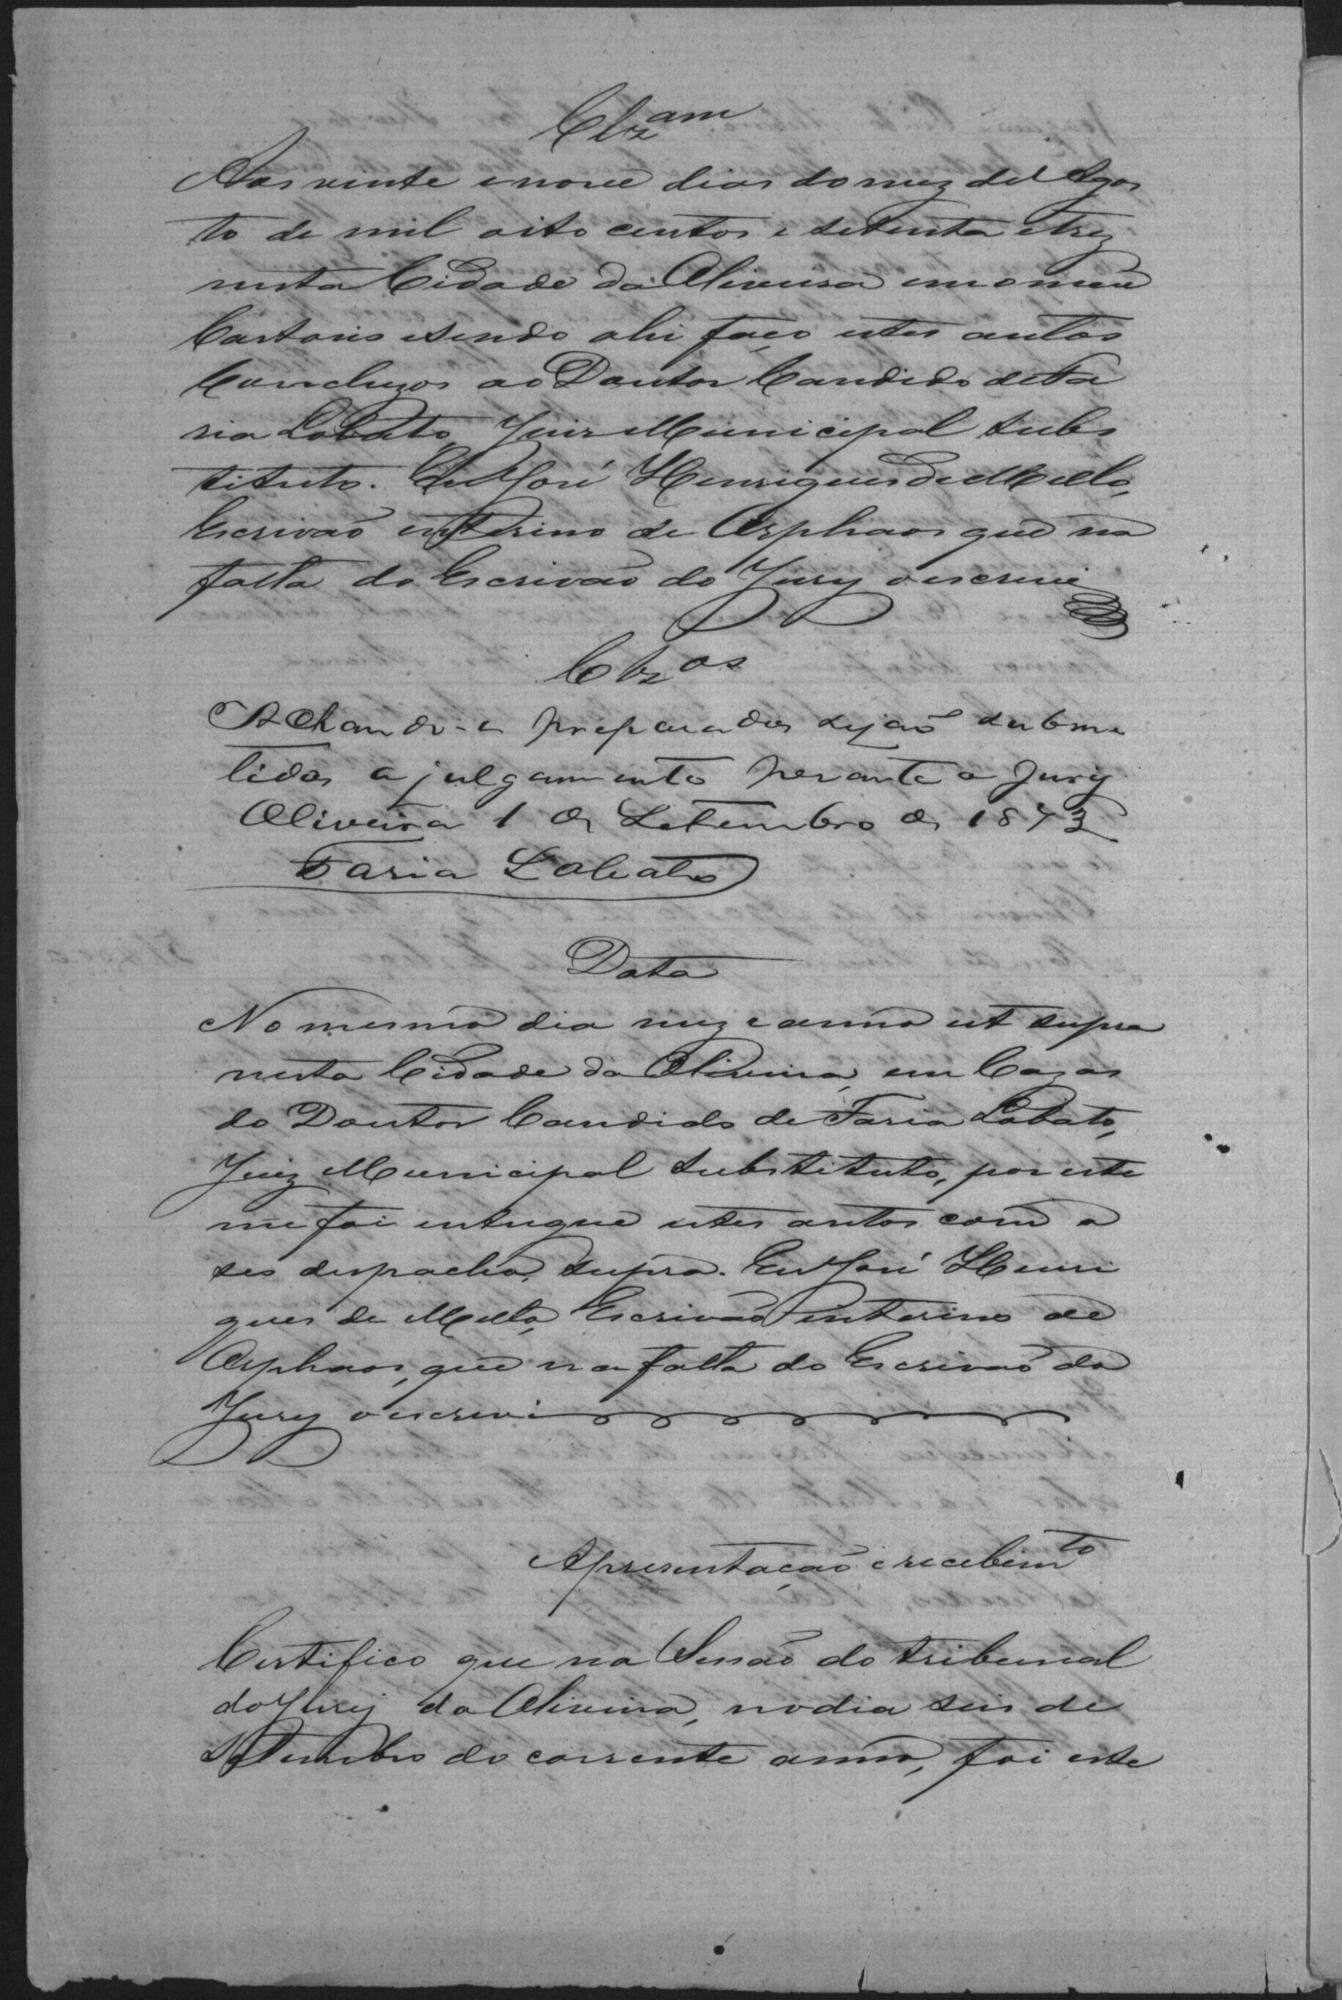 Clzam
Aos vinte e nove dias do mez de Agos
to de mil oito centos e setenta e trez
nesta Cidade da Oliveira em o meu
Cartorio e sendo ahi faço estes autos
Concluzos ao Doutor Candido de Fa
ria Lobato, Juiz Municipal subs
tituto. Eu José Henriques de Mello,
Escrivaõ interino de Orphaos que na
falta do Escrivaõ do Jury o escrevi
Clzos
Achando-se preparados sejaõ subme
tidos a julgamento perante o Jury
Oliveira 1 de Setembro de 1873
Faria Lobato
Data
No mesmo dia mez e anno ut supra
nesta Cidade da Oliveira, em Cazas
do Doutor Candido de Faria Lobato,
Juiz Municipal substituto, por este
me foi entregue estes autos com o
seo despacho supra. Eu José Henri
ques de Mello, Escrivaõ interino de
Orphaos, que na falta do Escrivaõ do
Jury o escrevi
Apresentaçaõ e recebimto
Certifico que na Sessaõ do tribunal
do Jury da Oliveira, no dia seis de
Setembro do corrente anno, foi este